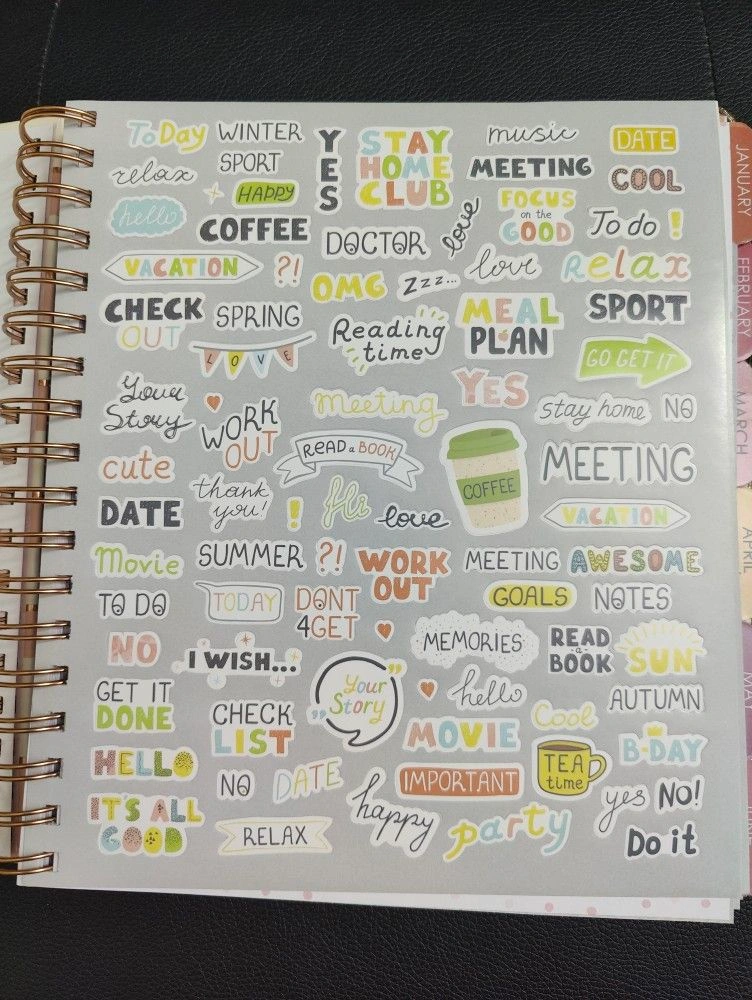 ToDay
WINTER
YES
STAY
HOME
CLUB
music
DATE
relax
SPORT
MEETING
COOL
HAPPY
hello
COFFEE
DOCTOR
love
FOCUS
on the
GOOD
To do !
VACATION
?!
OMG
Zzz...
love
Relax
CHECK
OUT
SPRING
Reading
time
MEAL
PLAN
SPORT
LOVE
GO GET IT
Your
Story
WORK
OUT
meeting
YES
stay home
NO
cute
READ a BOOK
COFFEE
MEETING
DATE
thank
you!
!
Hi
love
VACATION
Movie
SUMMER
?!
WORK
OUT
MEETING
AWESOME
TO DO
TODAY
DONT
4GET
GOALS
NOTES
NO
I WISH...
MEMORIES
READ
a
BOOK
SUN
GET IT
DONE
CHECK
LIST
"Your
Story"
hello
Cool
AUTUMN
MOVIE
B-DAY
HELLO
NO
DATE
IMPORTANT
TEA
time
yes
NO!
IT'S ALL
GOOD
RELAX
happy
party
Do it
JANUARY
FEBRUARY
MARCH
APRIL
MAY